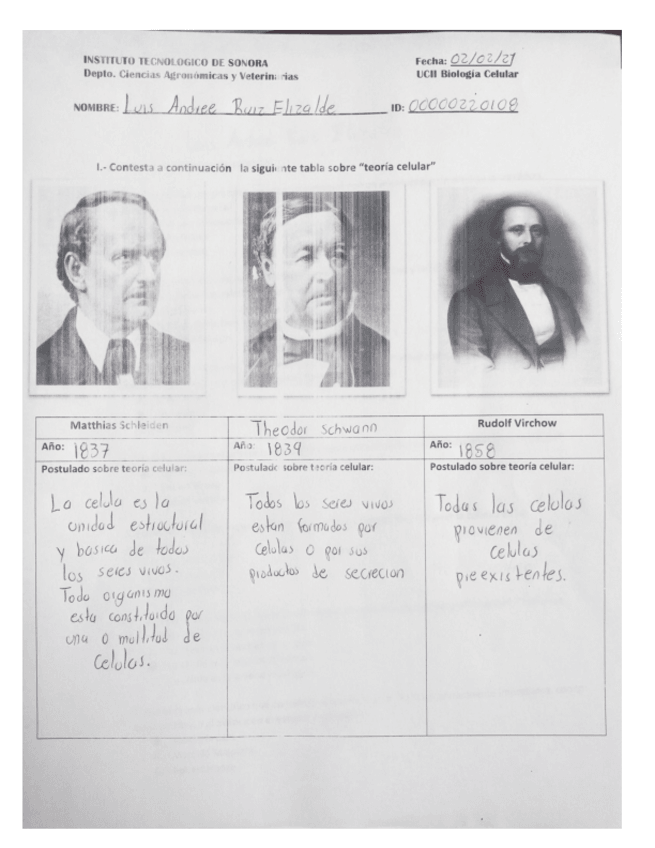 INSTITUTO TECNOLOGICO DE SONORA
Depto. Ciencias Agronómicas y Veterinarias
Fecha: 02/02/21
UCII Biología Celular
NOMBRE: Luis Andree Ruiz Elizalde ID: 00000220108
I.- Contesta a continuación la siguiente tabla sobre "teoría celular"
Matthias Schleiden
Año: 1837
Postulado sobre teoría celular:
La celula es la
unidad estructural
y basica de todos
los seres vivos.
Todo organismo
esta constituido por
una o multitud de
celulas.
Theodor Schwann
Año: 1839
Postulado sobre teoría celular:
Todos los seres vivos
estan formados por
celulas o por sus
productos de secrecion
Rudolf Virchow
Año: 1858
Postulado sobre teoría celular:
Todas las celulas
provienen de
celulas
preexistentes.